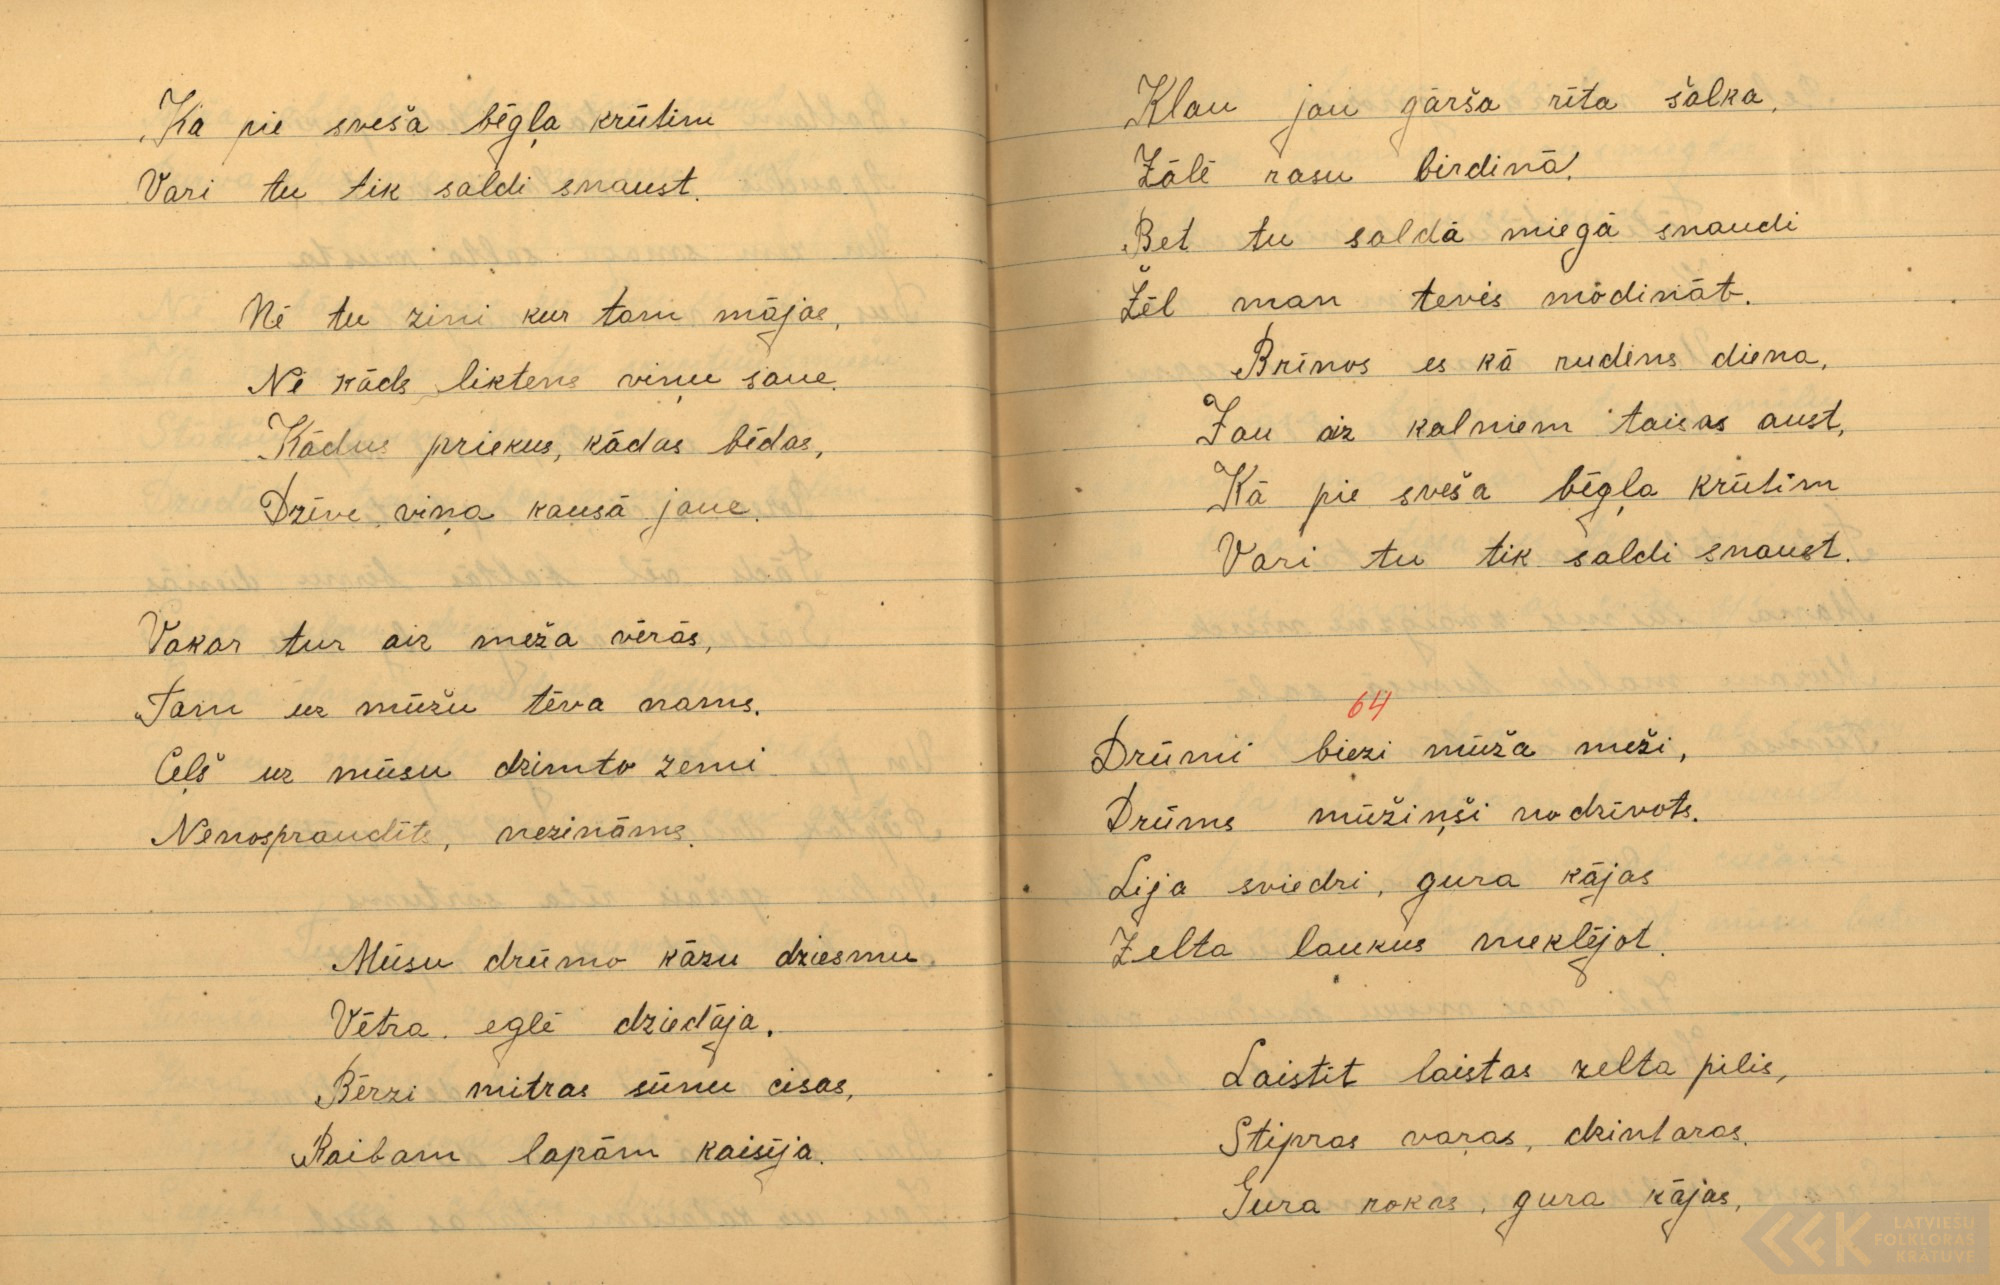 Kā pie sveša bēgļa krūtim
Vari tu tik saldi snaust.
Nē tu zini kur tam mājas,
Nē kāds liktens viņu saue.
Kādus priekus, kādas bēdas,
Dzīve viņa kausā jaue.
Vakar tur aiz meža vērās,
Tam uz mūžu tēva nams.
Ceļš uz mūsu dzimto zemi
Nenospraudīts, nezināms.
Mūsu drūmo kāzu dziesmu
Vētra eglē dziedāja.
Bērzi mitras sūnu cisas,
Raibam lapām kaisīja.
Klau jau gārša rīta šalka,
Zālē rasu birdinā.
Bet tu saldā miegā snaudi
Žēl man tevis mōdināt.
Brīnos es kā rudens diena,
Jau aiz kalniem taisas aust,
Kā pie sveša bēgļa krūtim
Vari tu tik saldi snaust.
64
Drūmi biezi mūža meži,
Drūms mūžiņši nodzīvots.
Lija sviedri, gura kājas
Zelta laukus meklējot.
Laistīt laistas zelta pilis,
Stipras vaŗas, dzintaras.
Gura rokas, gura kājas,
LATVIEŠU
FOLKLORAS
KRĀTUVE